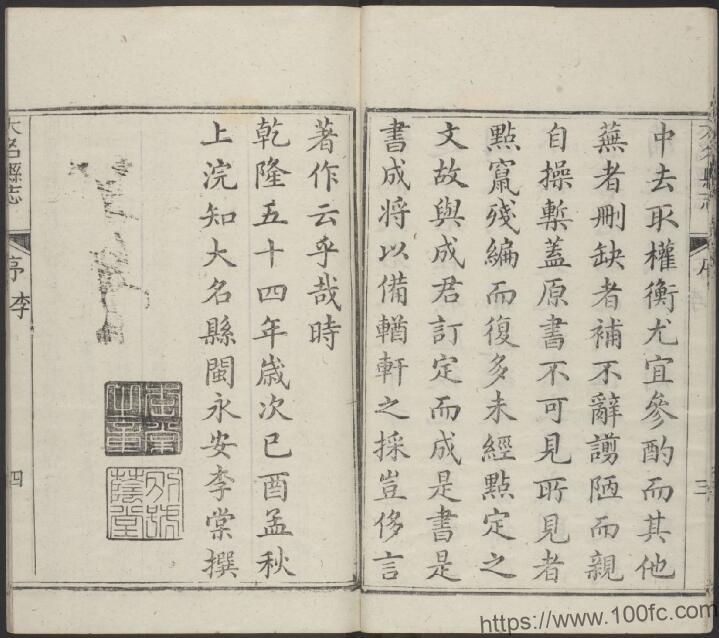 中去取權衡尤宜參酌而其他
蕪者刪缺者補不辭謭陋而親
自操槧蓋原書不可見所見者
點竄殘編而復多未經點定之
文故與成君訂定而成是書是
書成將以備輶軒之採豈侈言
序
三
著作云乎哉時
乾隆五十四年歲次己酉孟秋
上浣知大名縣閩永安李棠撰
大名縣志
序 李
四
https://www.100fc.com